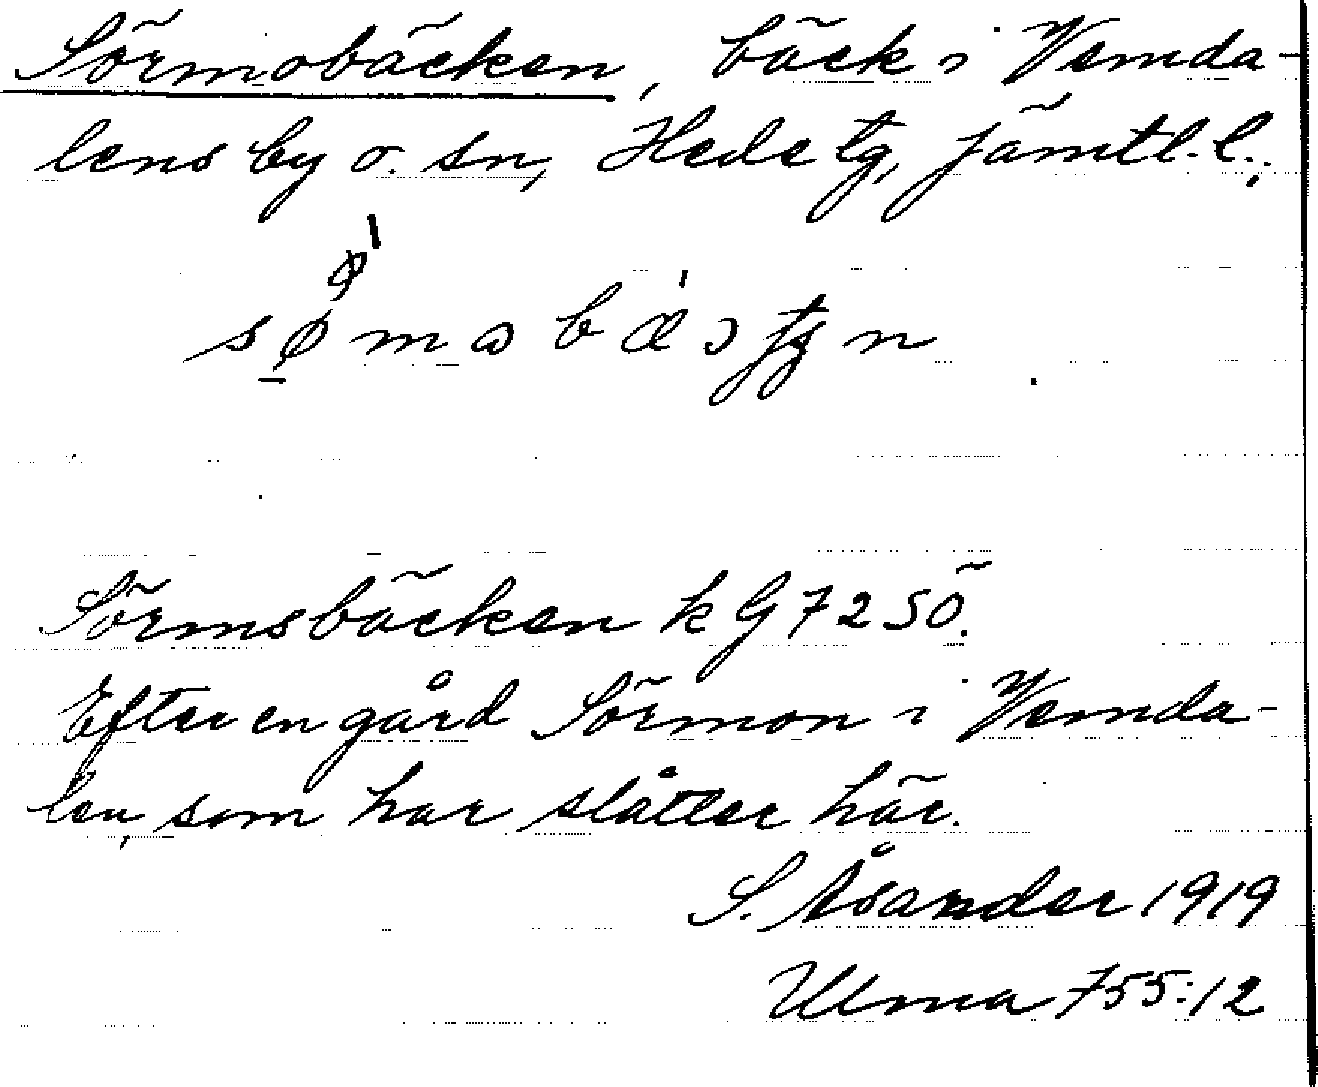 Sörmobäcken, bäck i Vemda-
lens by o. sn, Hede tg, Jämtl. l.;
Sörmsbäcken k G 72 SÖ.
Efter en gård Sörmon i Vemda-
len, som har slåtter här.
S. Åsander 1919
Ulma 755:12